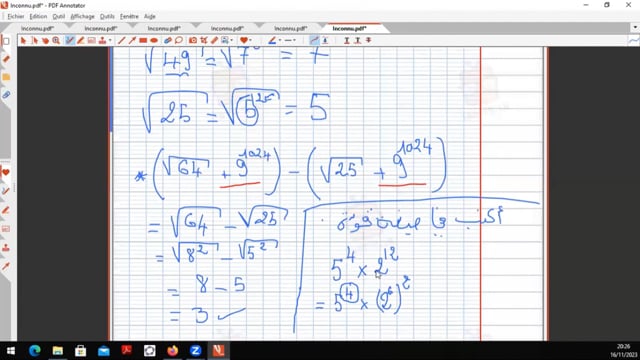 Inconnu.pdf* - PDF Annotator
Fichier Édition Affichage Outils Fenêtre Aide
Inconnu.pdf* Inconnu.pdf* Inconnu.pdf* Inconnu.pdf* Inconnu.pdf* Inconnu.pdf*
√49 = √7² = 7
√25 = √5² = 5
* (√64 + 9^1024) - (√25 + 9^1024)
= √64 - √25
= √8² - √5²
= 8 - 5
= 3 ✓
أكتب قوة
5^4 × 2^12
= 5^4 × (2^6)^2
20:26
16/11/2023